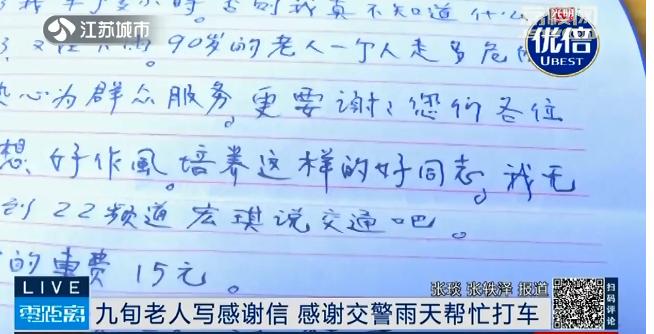 江苏城市
光明
优倍
UBEST
小时否则我真不知道什么
90岁的老人一个人走多危
心为群众服务。更要谢谢您们各位
想、好作風。培养这样的好同志。我无
到22频道宏琪说交通吧。
的車费15元。
LIVE
零距离
张琰 张轶泽 报道
九旬老人写感谢信 感谢交警雨天帮忙打车
扫码评论